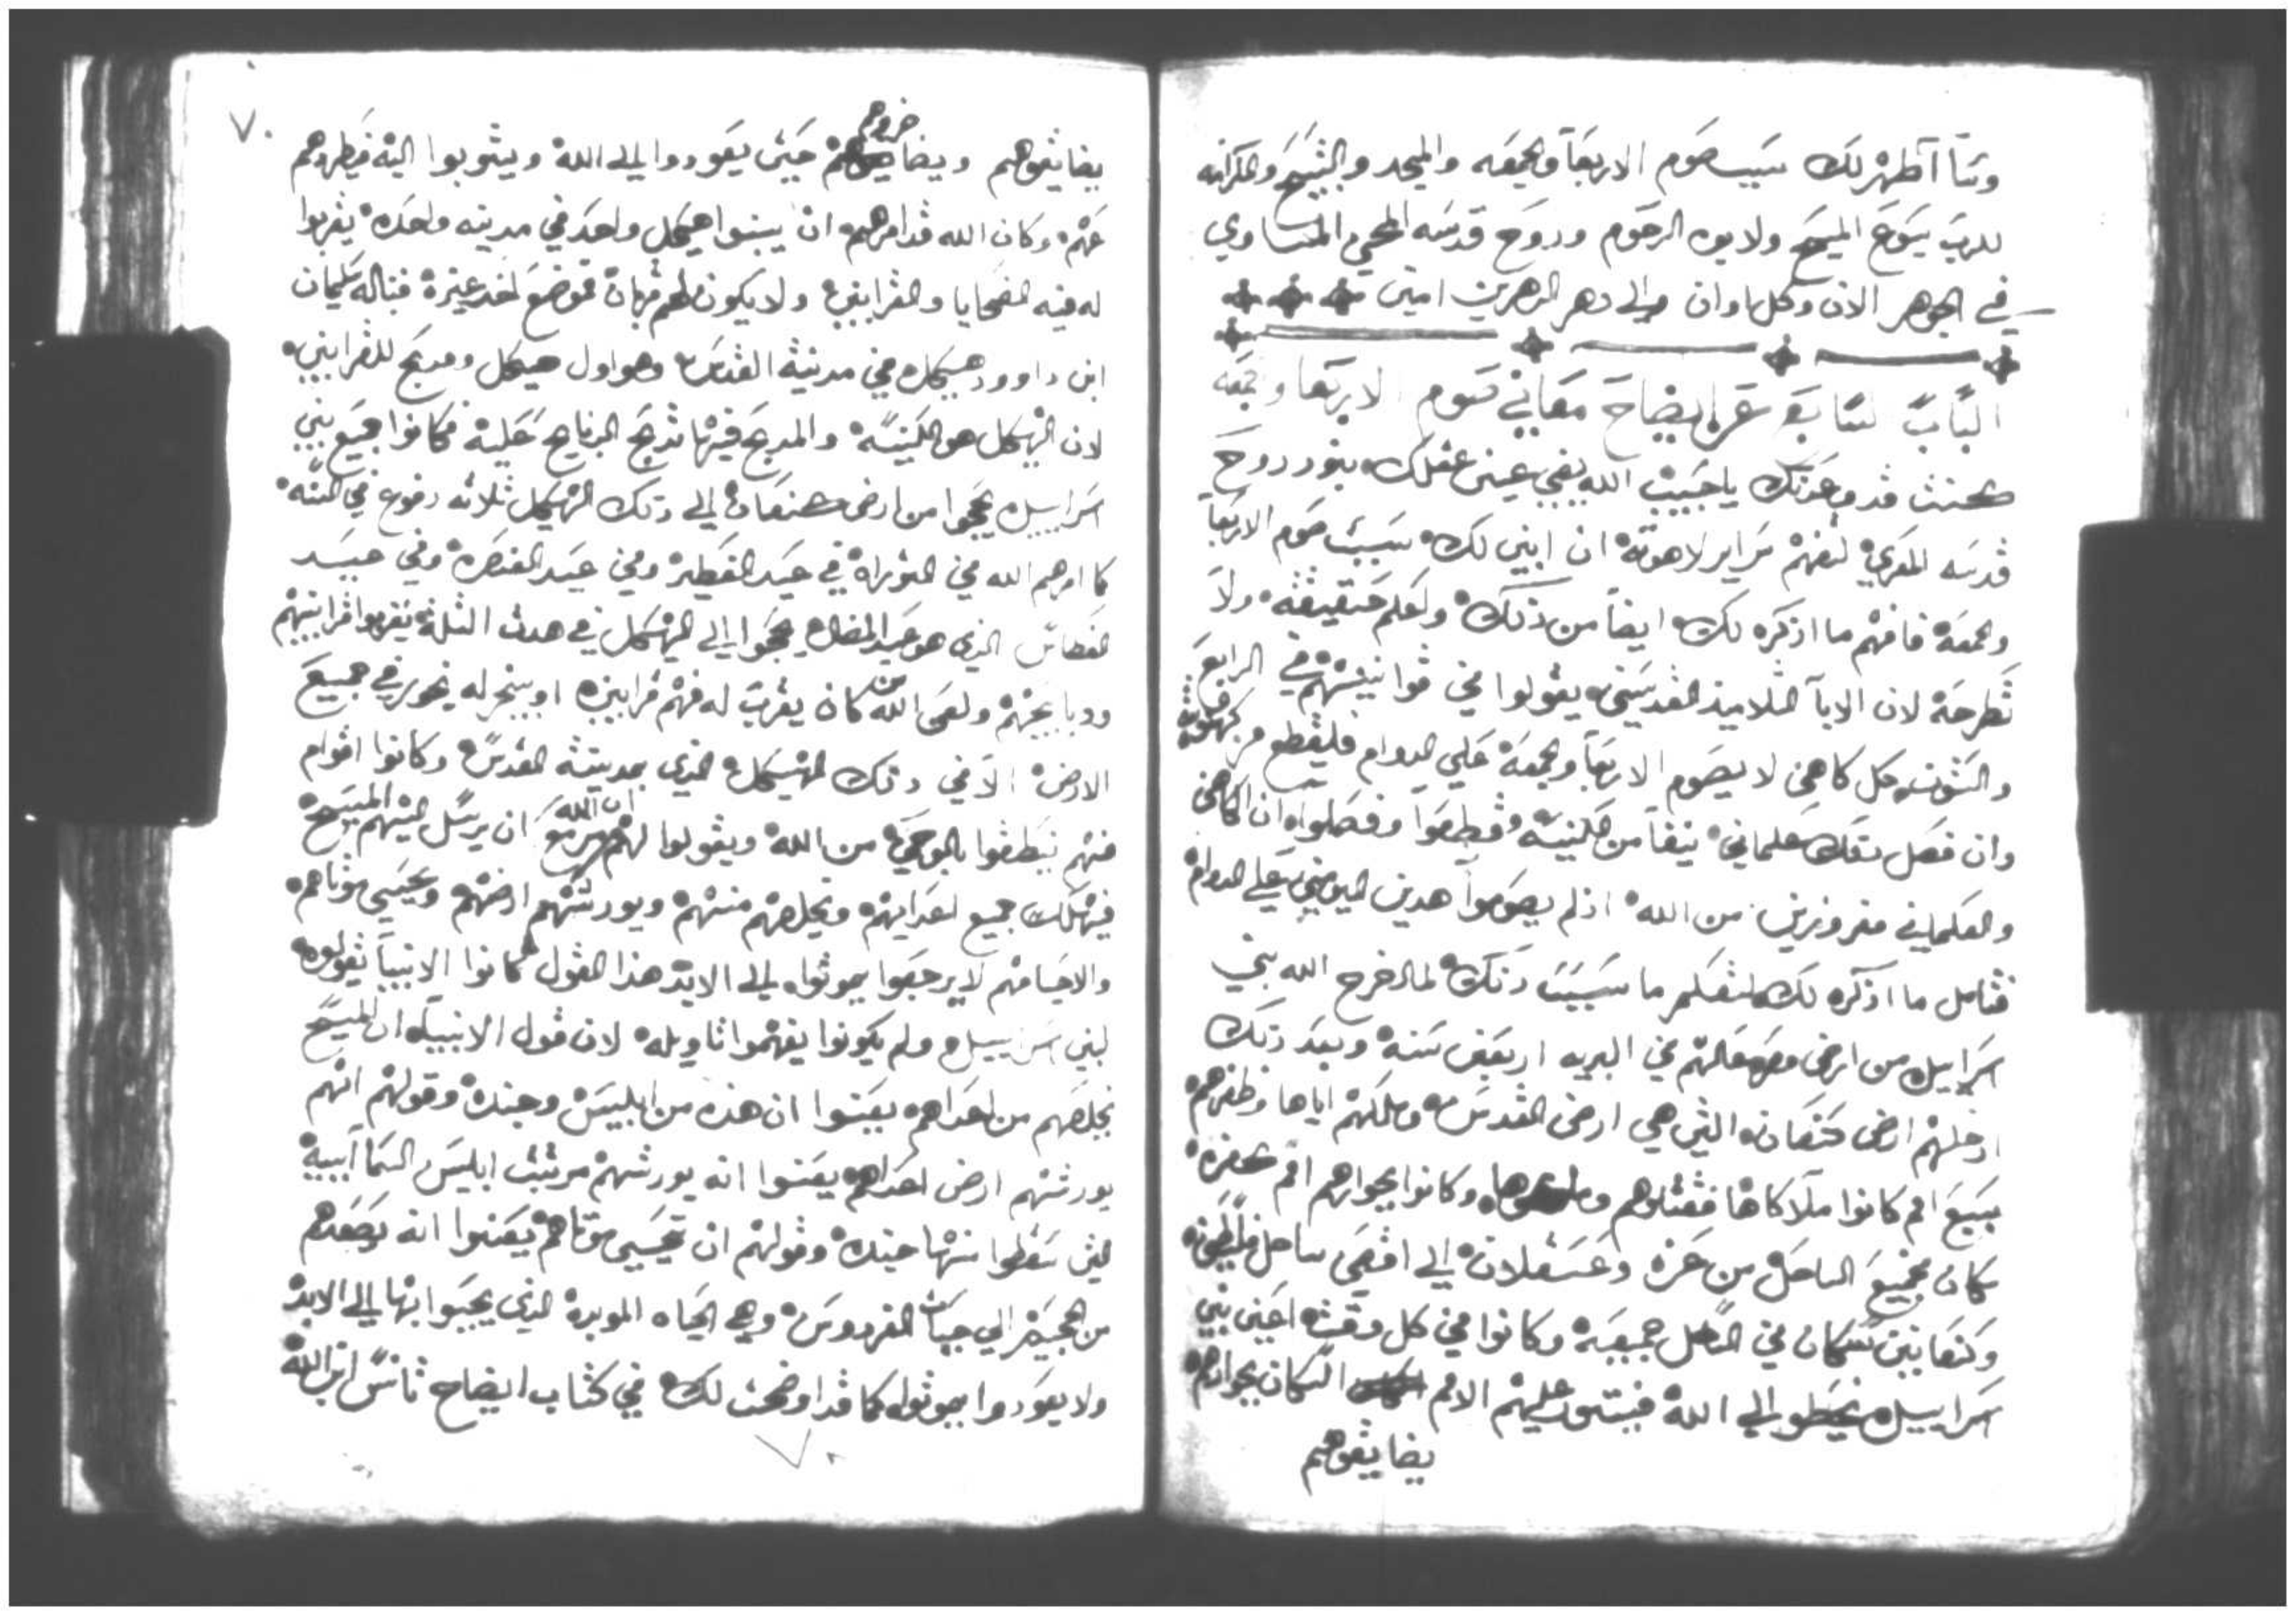 وسَاآظهر لك سبب صوم الاربعا والجمعه والمجد والتسبيح والكرامه
للرب يسوع المسيح ولابوه الرحوم وروح قدسه المحيي المساوي
في الجوهر الان وكل اوان والي دهر الدهرين امين
الباب السابع عشر ايضاح معاني صوم الاربعا وجمعه
كنت قد وعدتك يا حبيب الله يضي عينين عقلك بنور روح
قدسه المعزي لتفهم سراير لاهوته ان ابين لك سبب صوم الاربعا
والجمعه فافهم ما اذكره لك ايضا من ذلك واعلم حقيقته ولا
تطرحه لان الابآ التلاميذ القديسين يقولوا في قوانينهم في الرابع
والستون كل كاهن لا يصوم الاربعا والجمعه علي الدوام فليقطع من كهنوته
وان فعل ذلك علماني ينفا من الكنيسه وقطعوا وفصلوا ان الكاهن
والعلماني مفروزين من الله اذ لم يصوموا هدين اليومين علي الدوام
فتامل ما اذكره لك لتعلم ما سبب ذلك لما اخرج الله بني
اسراييل من ارض مصر عالهم في البريه اربعين سنه وبعد ذلك
ادخلهم ارض كنعان التي هي ارض القدس وملكهم اياها وظفرهم
بسبع امم كانوا ملاكاها فقتلوهم وكانوا بجوارهم امم كفره
سكان بجميع الساحل من غزه وعسقلان الي اقصي ساحل فلسطين
وكنعانيين سكان في الساحل جميعه وكانوا في كل وقت احين بني
اسراييل يخطوا الي الله فيستعون عليهم الامم السكان بجوارهم
يضايقوهم
٧٠
يضايقوهم ويضاضروهم حين يعودوا الي الله ويتوبوا اليه فيطردهم
عنهم وكان الله قد امرهم ان يبنوا هيكل واحد في مدينه واحده يقربوا
له فيه الضحايا والقرابين ولا يكون لهم قربان موضع اخر غيره فبناله سليمان
ابن داوود هيكل في مدينة القدس وهو اول هيكل ومدبح للقرابين
لان الهيكل هو الكنيسه والمدبح فيها تدبح الدبايح عليه فكانوا جميع بني
اسراييل يحجوا من ارض كنعان الي ذلك الهيكل ثلاثه دفوع في السنه
كما امرهم الله في التوراه في عيد الفطير وفي عيد العنصره وفي عيد
الغطاس الذي هو عيد المضال يحجوا الي الهيكل في هدن الثلثة يقربوا قرابينهم
ودبايحهم ولعن الله من كان يقرب له فيهم قرابين او يبخر له بخور في جميع
الارض الا في ذلك الهيكل الذي بمدينة القدس وكانوا اقوام
منهم ينطقوا بالوحي من الله ويقولوا لهم ان الله مزمع ان يرسل اليهم المسيح
فيهلك جميع اعدايهم ويخلصهم منهم ويورثهم ارضهم ويحيي موتاهم
والاحيا منهم لا يرجعوا يموتوا الي الابد هذا القول كانوا الانبيا يقولوه
لبني اسراييل ولم يكونوا يفهموا تاويله لان قول الانبيا ان المسيح
يخلصهم من اعداهم يعنوا ان هذه من ابليس وجنده وقولهم انهم
يورثهم ارض اعداهم يعنوا انه يورثهم مرتبت ابليس السماآييه
التي سقطوا منها جنده وقولهم ان يحيي موتاهم يعنوا انه يصعدهم
من الجحيم الي جنات الفردوس وهي الحياه الموبده الذي يحيوا بها الي الابد
ولا يعودوا يموتوا كما قد اوضحت لك في كتاب ايضاح تانس ابن الله
٧٠